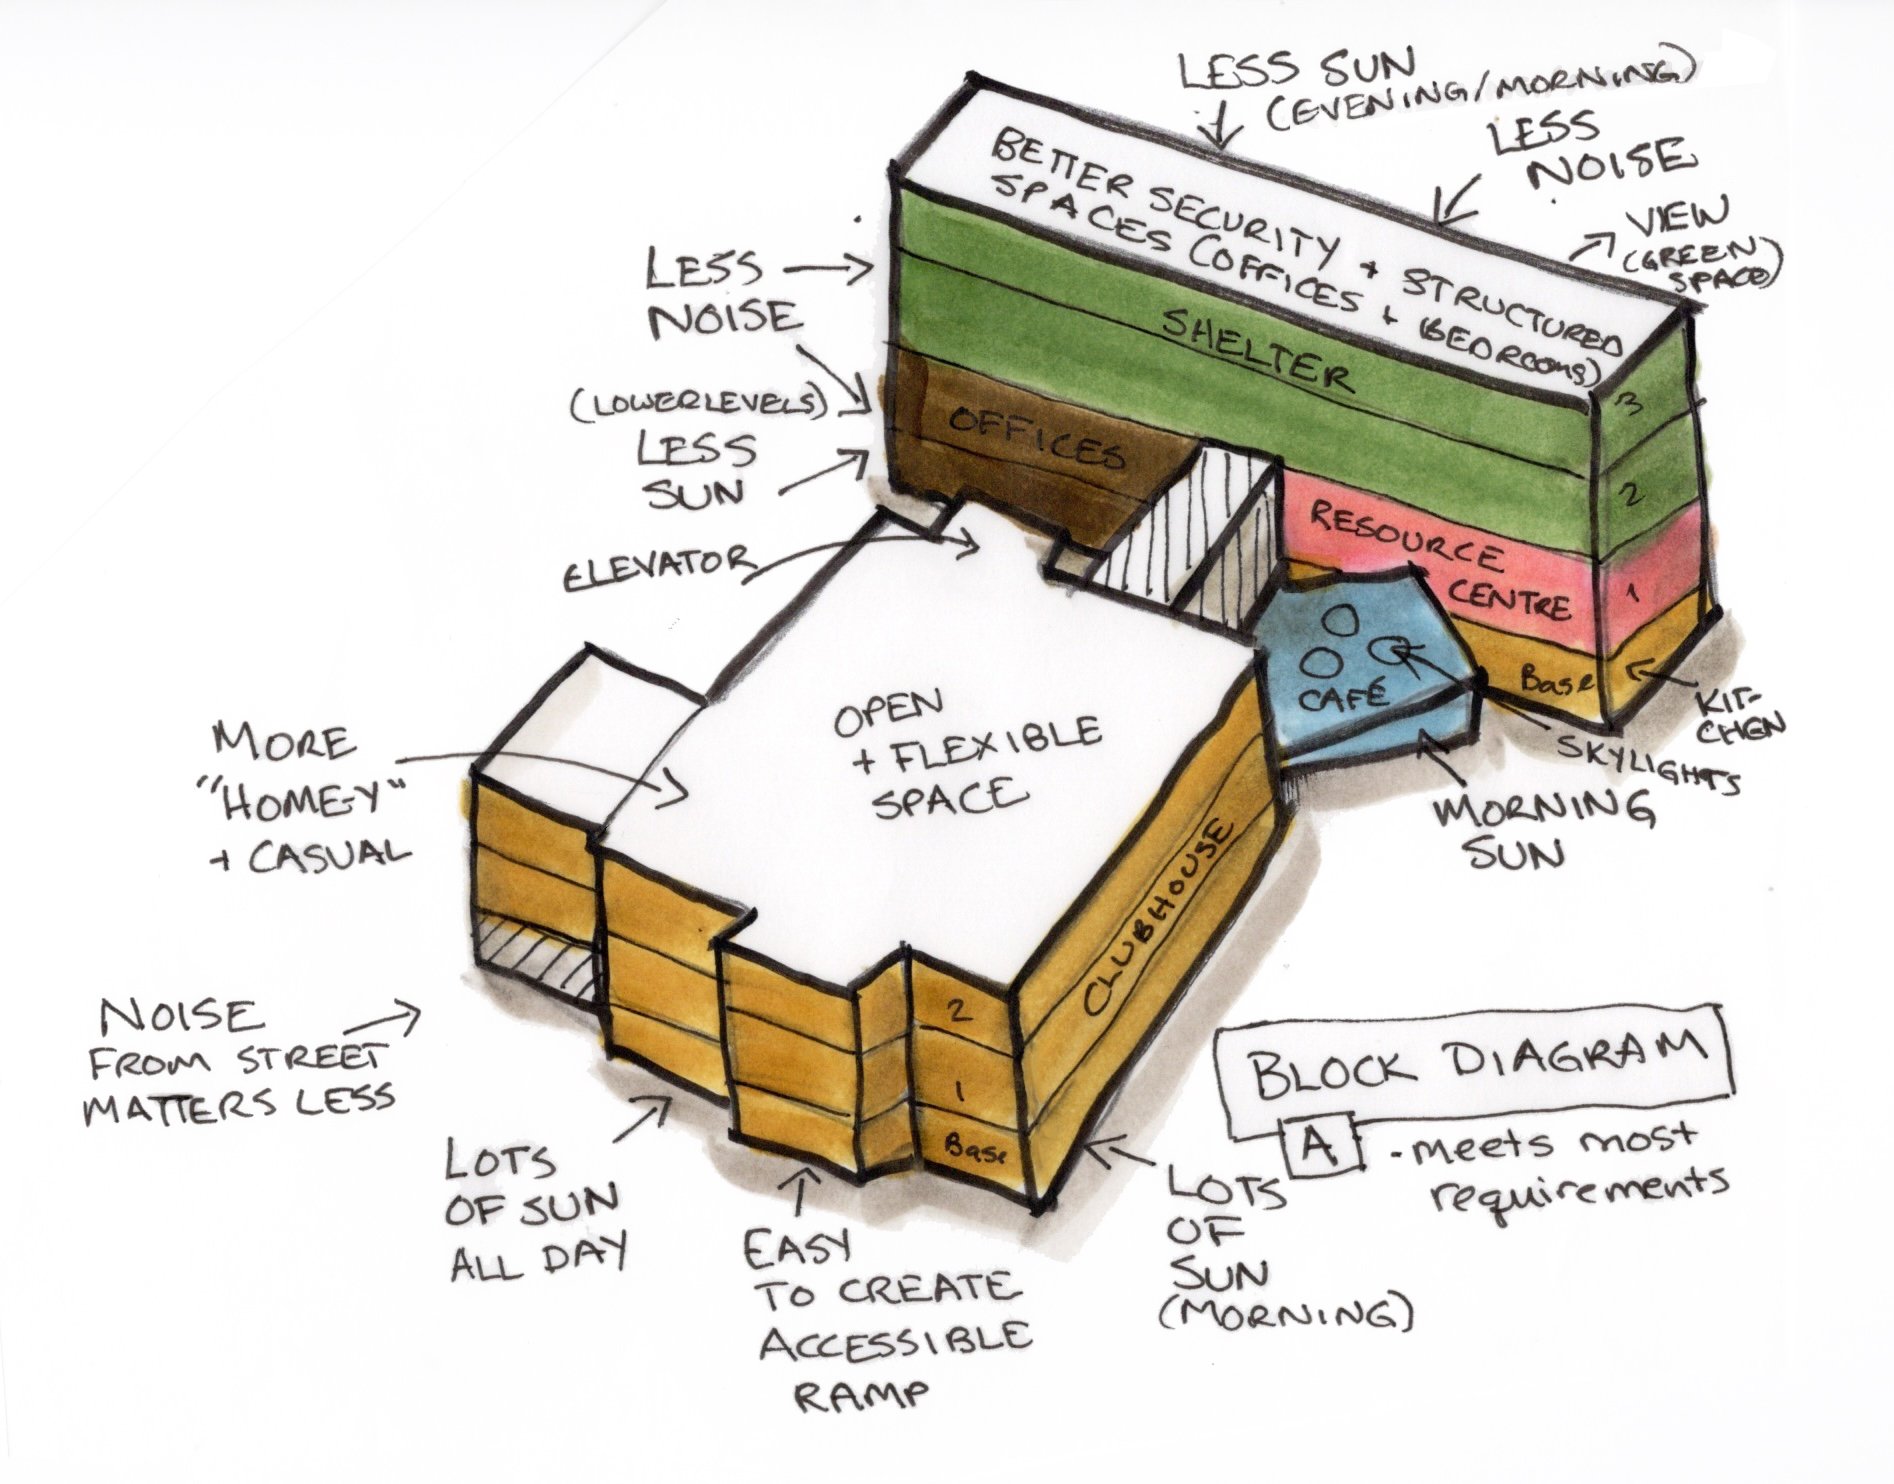 LESS SUN
(EVENING/MORNING)
LESS
NOISE
VIEW
(GREEN
SPACE)
BETTER SECURITY + STRUCTURED
SPACES (OFFICES + BEDROOMS)
LESS
NOISE
SHELTER
3
2
(LOWERLEVELS)
LESS
SUN
OFFICES
RESOURCE
CENTRE
1
ELEVATOR
CAFÉ
Base
KIT-
CHEN
SKYLIGHTS
MORNING
SUN
OPEN
+ FLEXIBLE
SPACE
MORE
"HOME-Y"
+ CASUAL
CLUBHOUSE
2
1
Base
NOISE
FROM STREET
MATTERS LESS
LOTS
OF SUN
ALL DAY
EASY
TO CREATE
ACCESSIBLE
RAMP
LOTS
OF
SUN
(MORNING)
BLOCK DIAGRAM
A - meets most
requirements